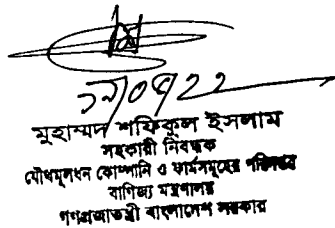 মুহাম্মদ শফিকুল ইসলাম
সহকারী নিবন্ধক
যৌথমূলধন কোম্পানি ও ফার্মসমূহের পরিদপ্তর
বাণিজ্য মন্ত্রণালয়
গণপ্রজাতন্ত্রী বাংলাদেশ সরকার